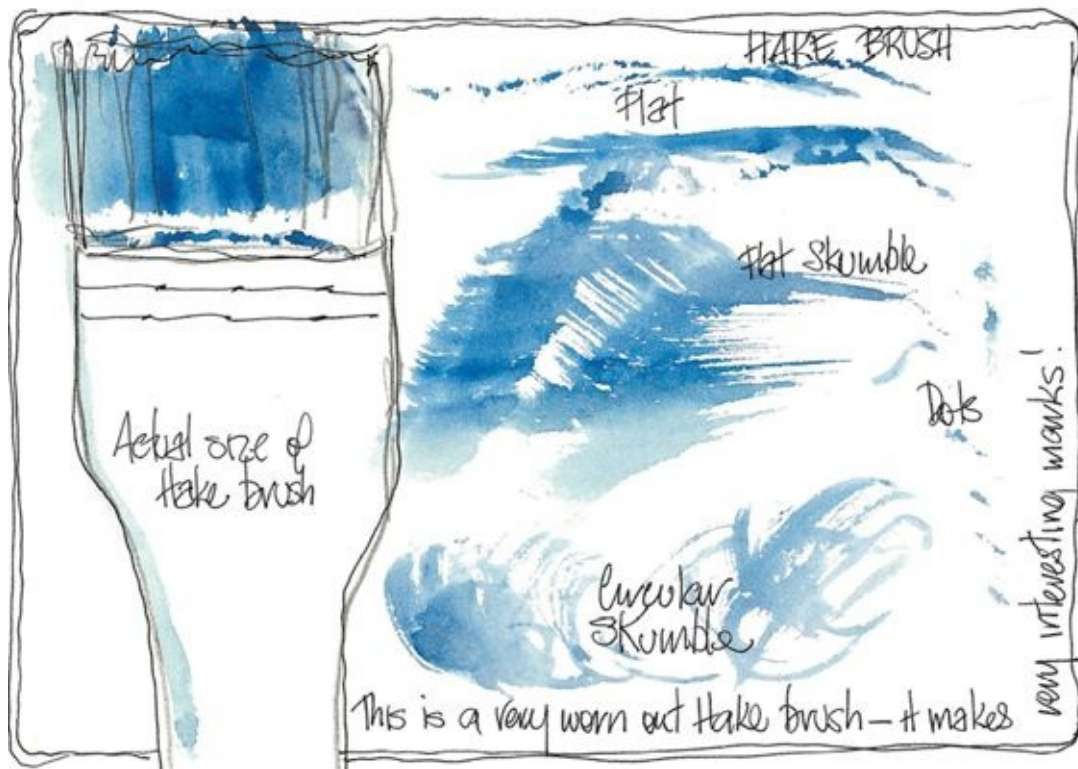 HAKE BRUSH
Flat
Flat Skumble
Dots
Actual size of
Hake brush
Circular
Skumble
This is a very worn out Hake brush – it makes
very interesting marks!